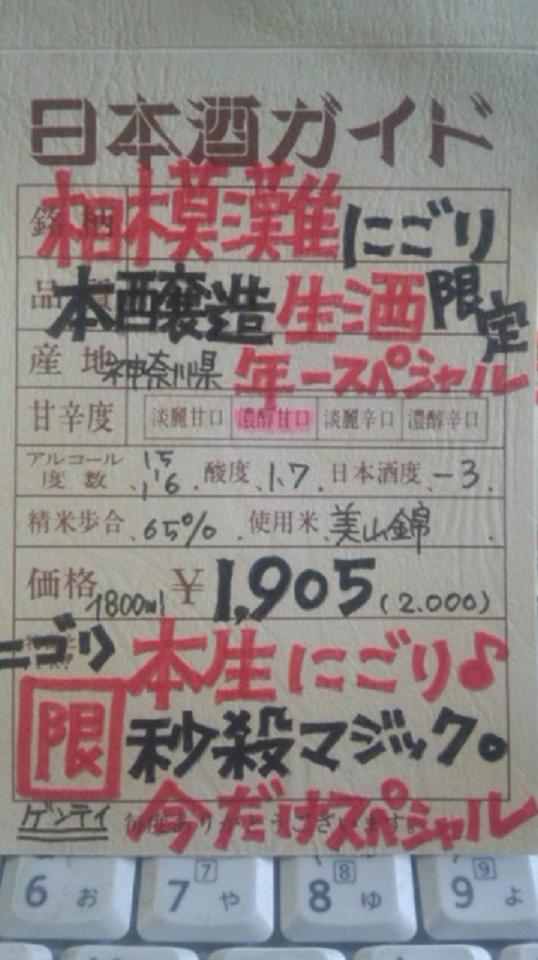 日本酒ガイド
銘柄 相模灘 にごり
品質 本醸造 生酒 限定
産地 神奈川県 年一スペシャル
甘辛度 淡麗甘口 濃醇甘口 淡麗辛口 濃醇辛口
アルコール度数 15 16 酸度 1.7 日本酒度 -3
精米歩合 65% 使用米 美山錦
価格 1800ml ¥1,905 (2.000)
ニゴリ 本生にごり♪
限 秒殺マジック。
ゲンテイ 今だけスペシャル
毎度ありがとうございます。
6 お 7 7 や 8 8 ゆ 9 9 よ